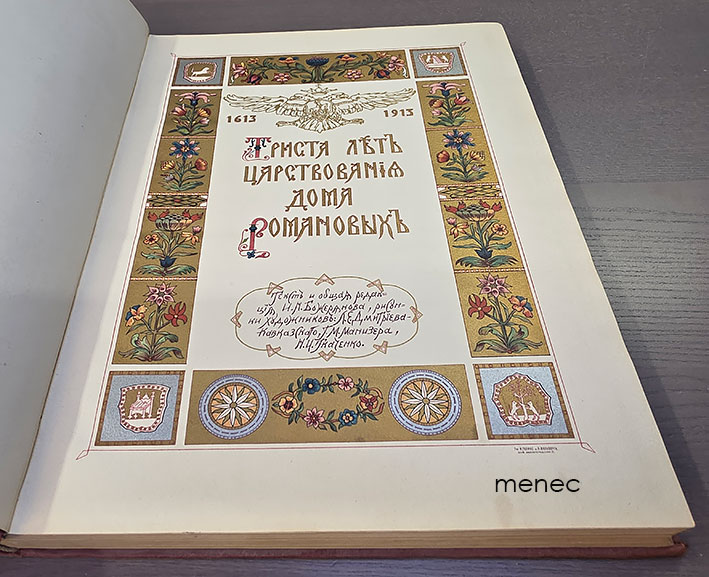 1613 1913
Триста лѣтъ
царствованія
дома
Романовыхъ
Текстъ и общая редак-
ція, И.Н. Божерянова, рисун-
ки художниковъ: Л.Е. Дмитріева-
Кавказскаго, Г.М. Манизера,
Н.И. Ткаченко.
menec